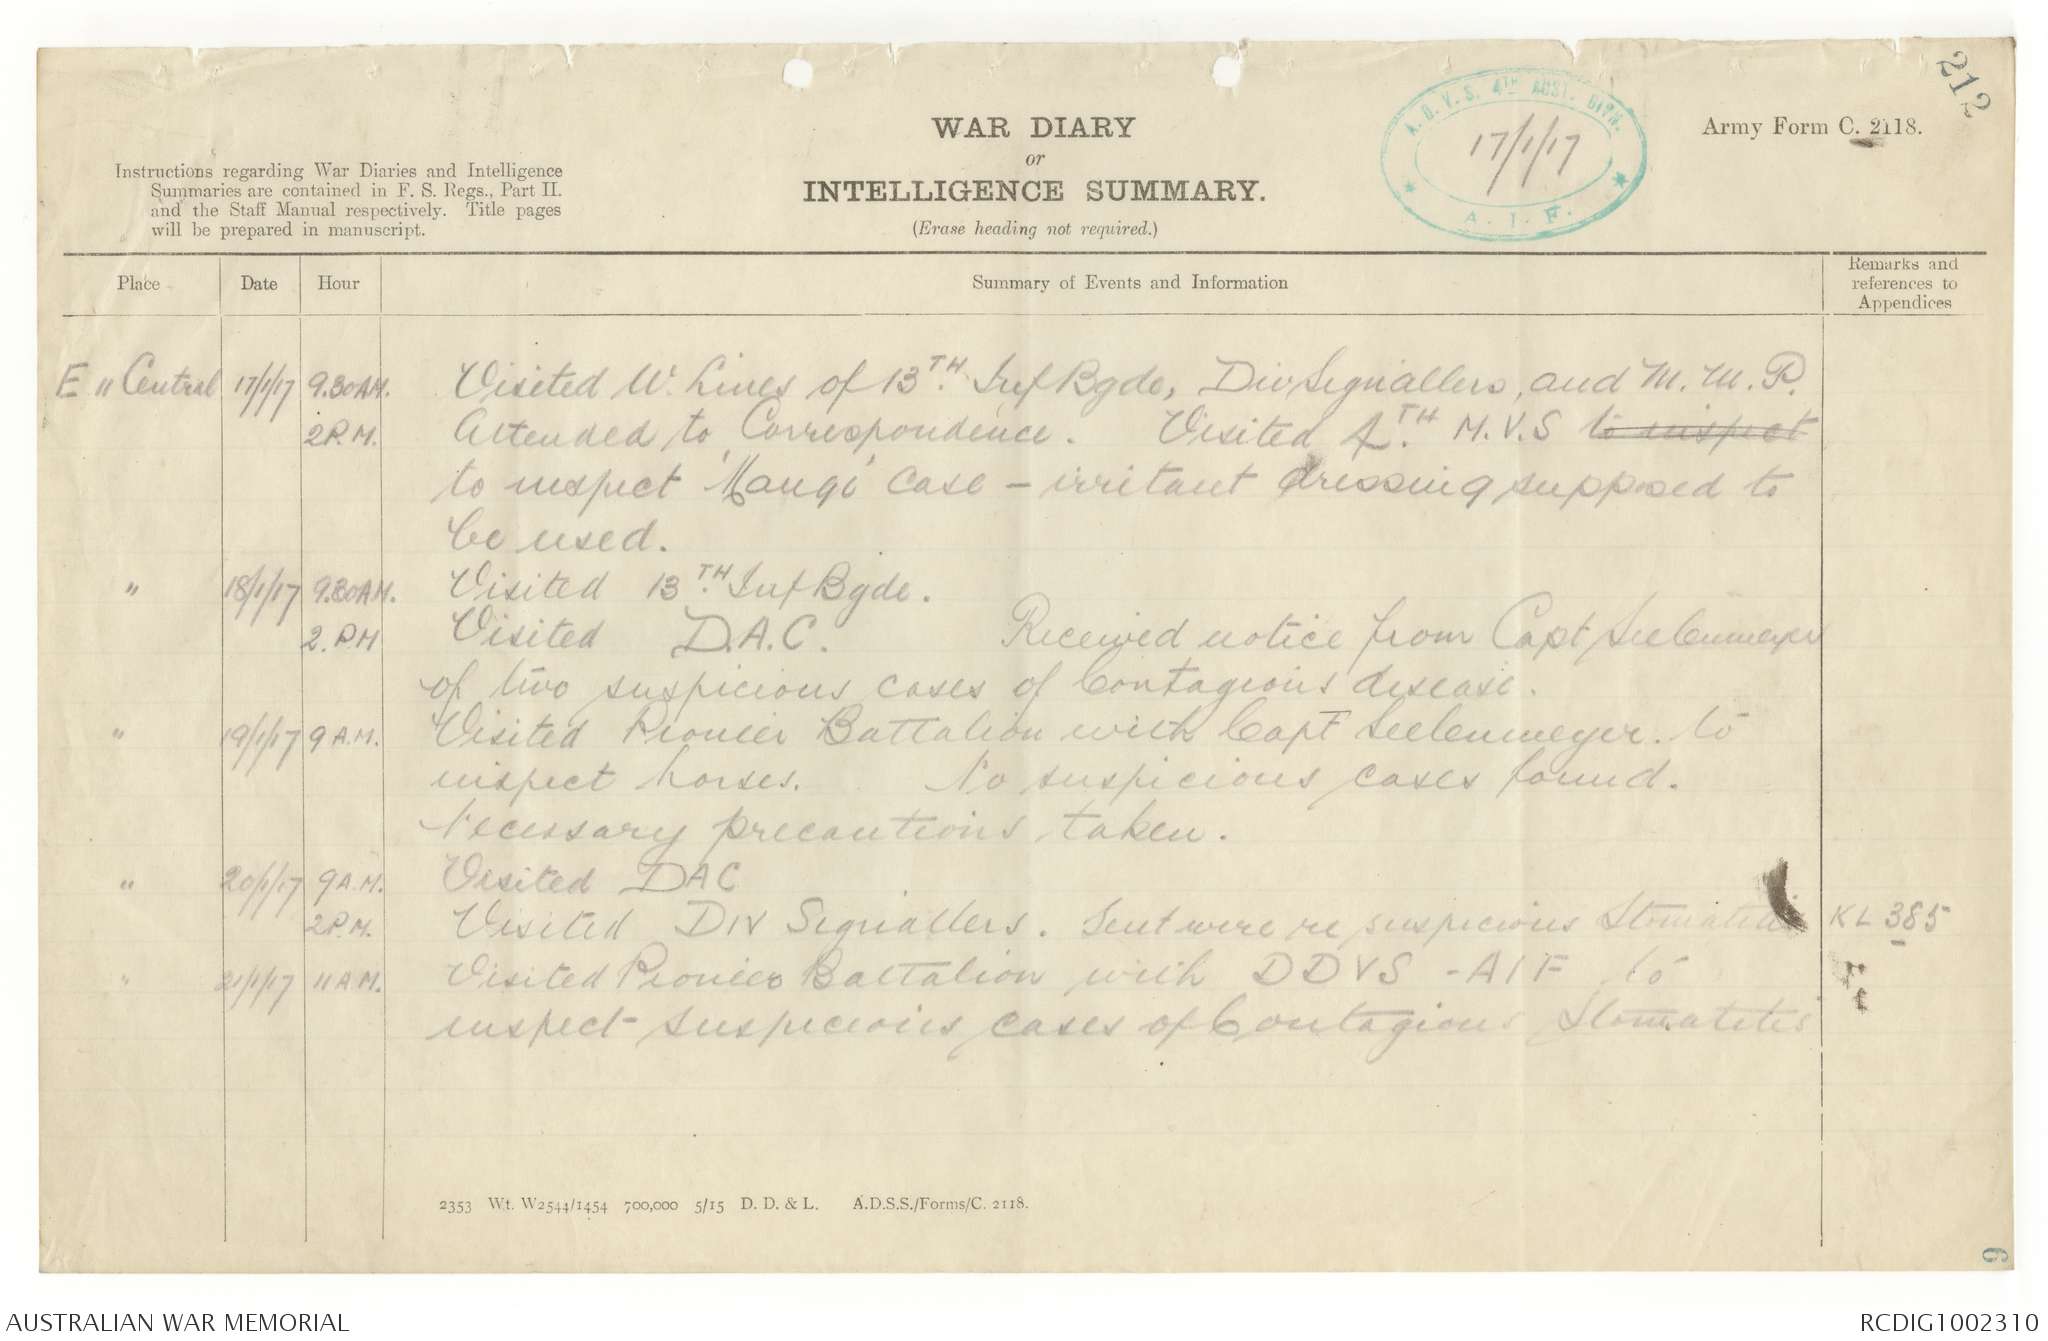 212
A. D. V. S. 4TH AUST. DIVN.
17/1/17
A. I. F.
Army Form C. 2118.
WAR DIARY
or
INTELLIGENCE SUMMARY.
(Erase heading not required.)
Instructions regarding War Diaries and Intelligence
Summaries are contained in F. S. Regs., Part II.
and the Staff Manual respectively. Title pages
will be prepared in manuscript.
Place Date Hour Summary of Events and Information Remarks and
references to
Appendices
E " Central 17/1/17 9.30AM. Visited W. Lines of 13TH. Inf Bgde, Div Signallers, and M. M. P.
2P.M. Attended to Correspondence. Visited 4TH. M.V.S to inspect
to inspect 'Mange' case - irritant dressing supposed to
be used.
" 18/1/17 9.30AM. Visited 13TH. Inf Bgde.
2.PM Visited D.A.C. Received notice from Capt Seelenmeyer
of two suspicious cases of Contagious disease.
" 19/1/17 9 A.M. Visited Pioneer Battalion with Capt Seelenmeyer. to
inspect horses. No suspicious cases found.
Necessary precautions taken.
" 20/1/17 9A.M. Visited DAC
2P.M. Visited Div Signallers. Sent wire re suspicious Stomatitis KL 385
" 21/1/17 11A.M. Visited Pioneer Battalion with DDVS - AIF to
inspect suspicious cases of Contagious Stomatitis
2353 Wt. W2544/1454 700,000 5/15 D. D. & L. A.D.S.S./Forms/C. 2118.
6
AUSTRALIAN WAR MEMORIAL RCDIG1002310